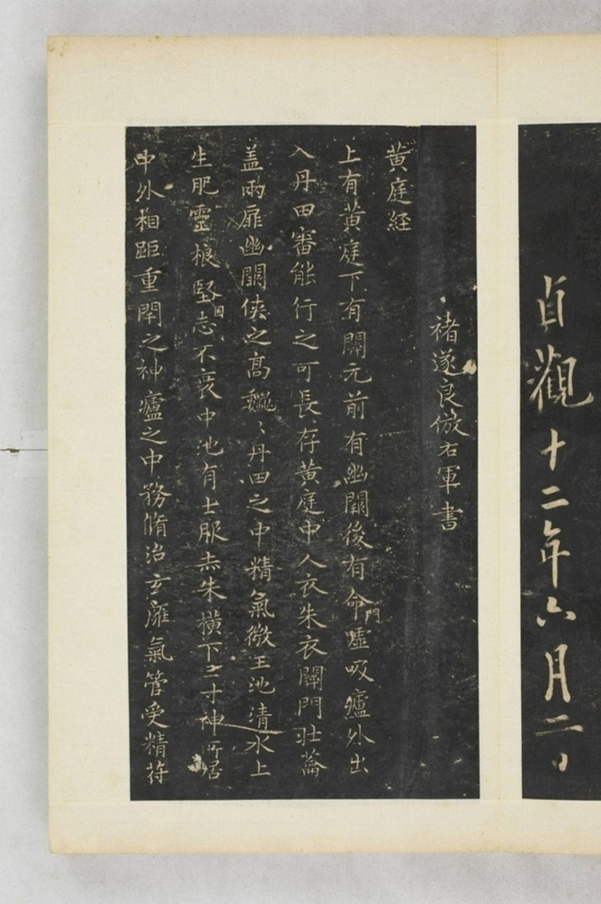 貞觀十二年六月二日
褚遂良倣右軍書
黄庭経
上有黄庭下有關元前有幽闕後有命門噓吸廬外出
入丹田審能行之可長存黄庭中人衣朱衣關門壯蘥
盖兩扉幽闕俠之高巍巍丹田之中精氣微玉池清水上
生肥靈根堅固志不衰中池有士服赤朱橫下三寸神所居
中外相距重閇之神廬之中務脩治玄廱氣管受精苻